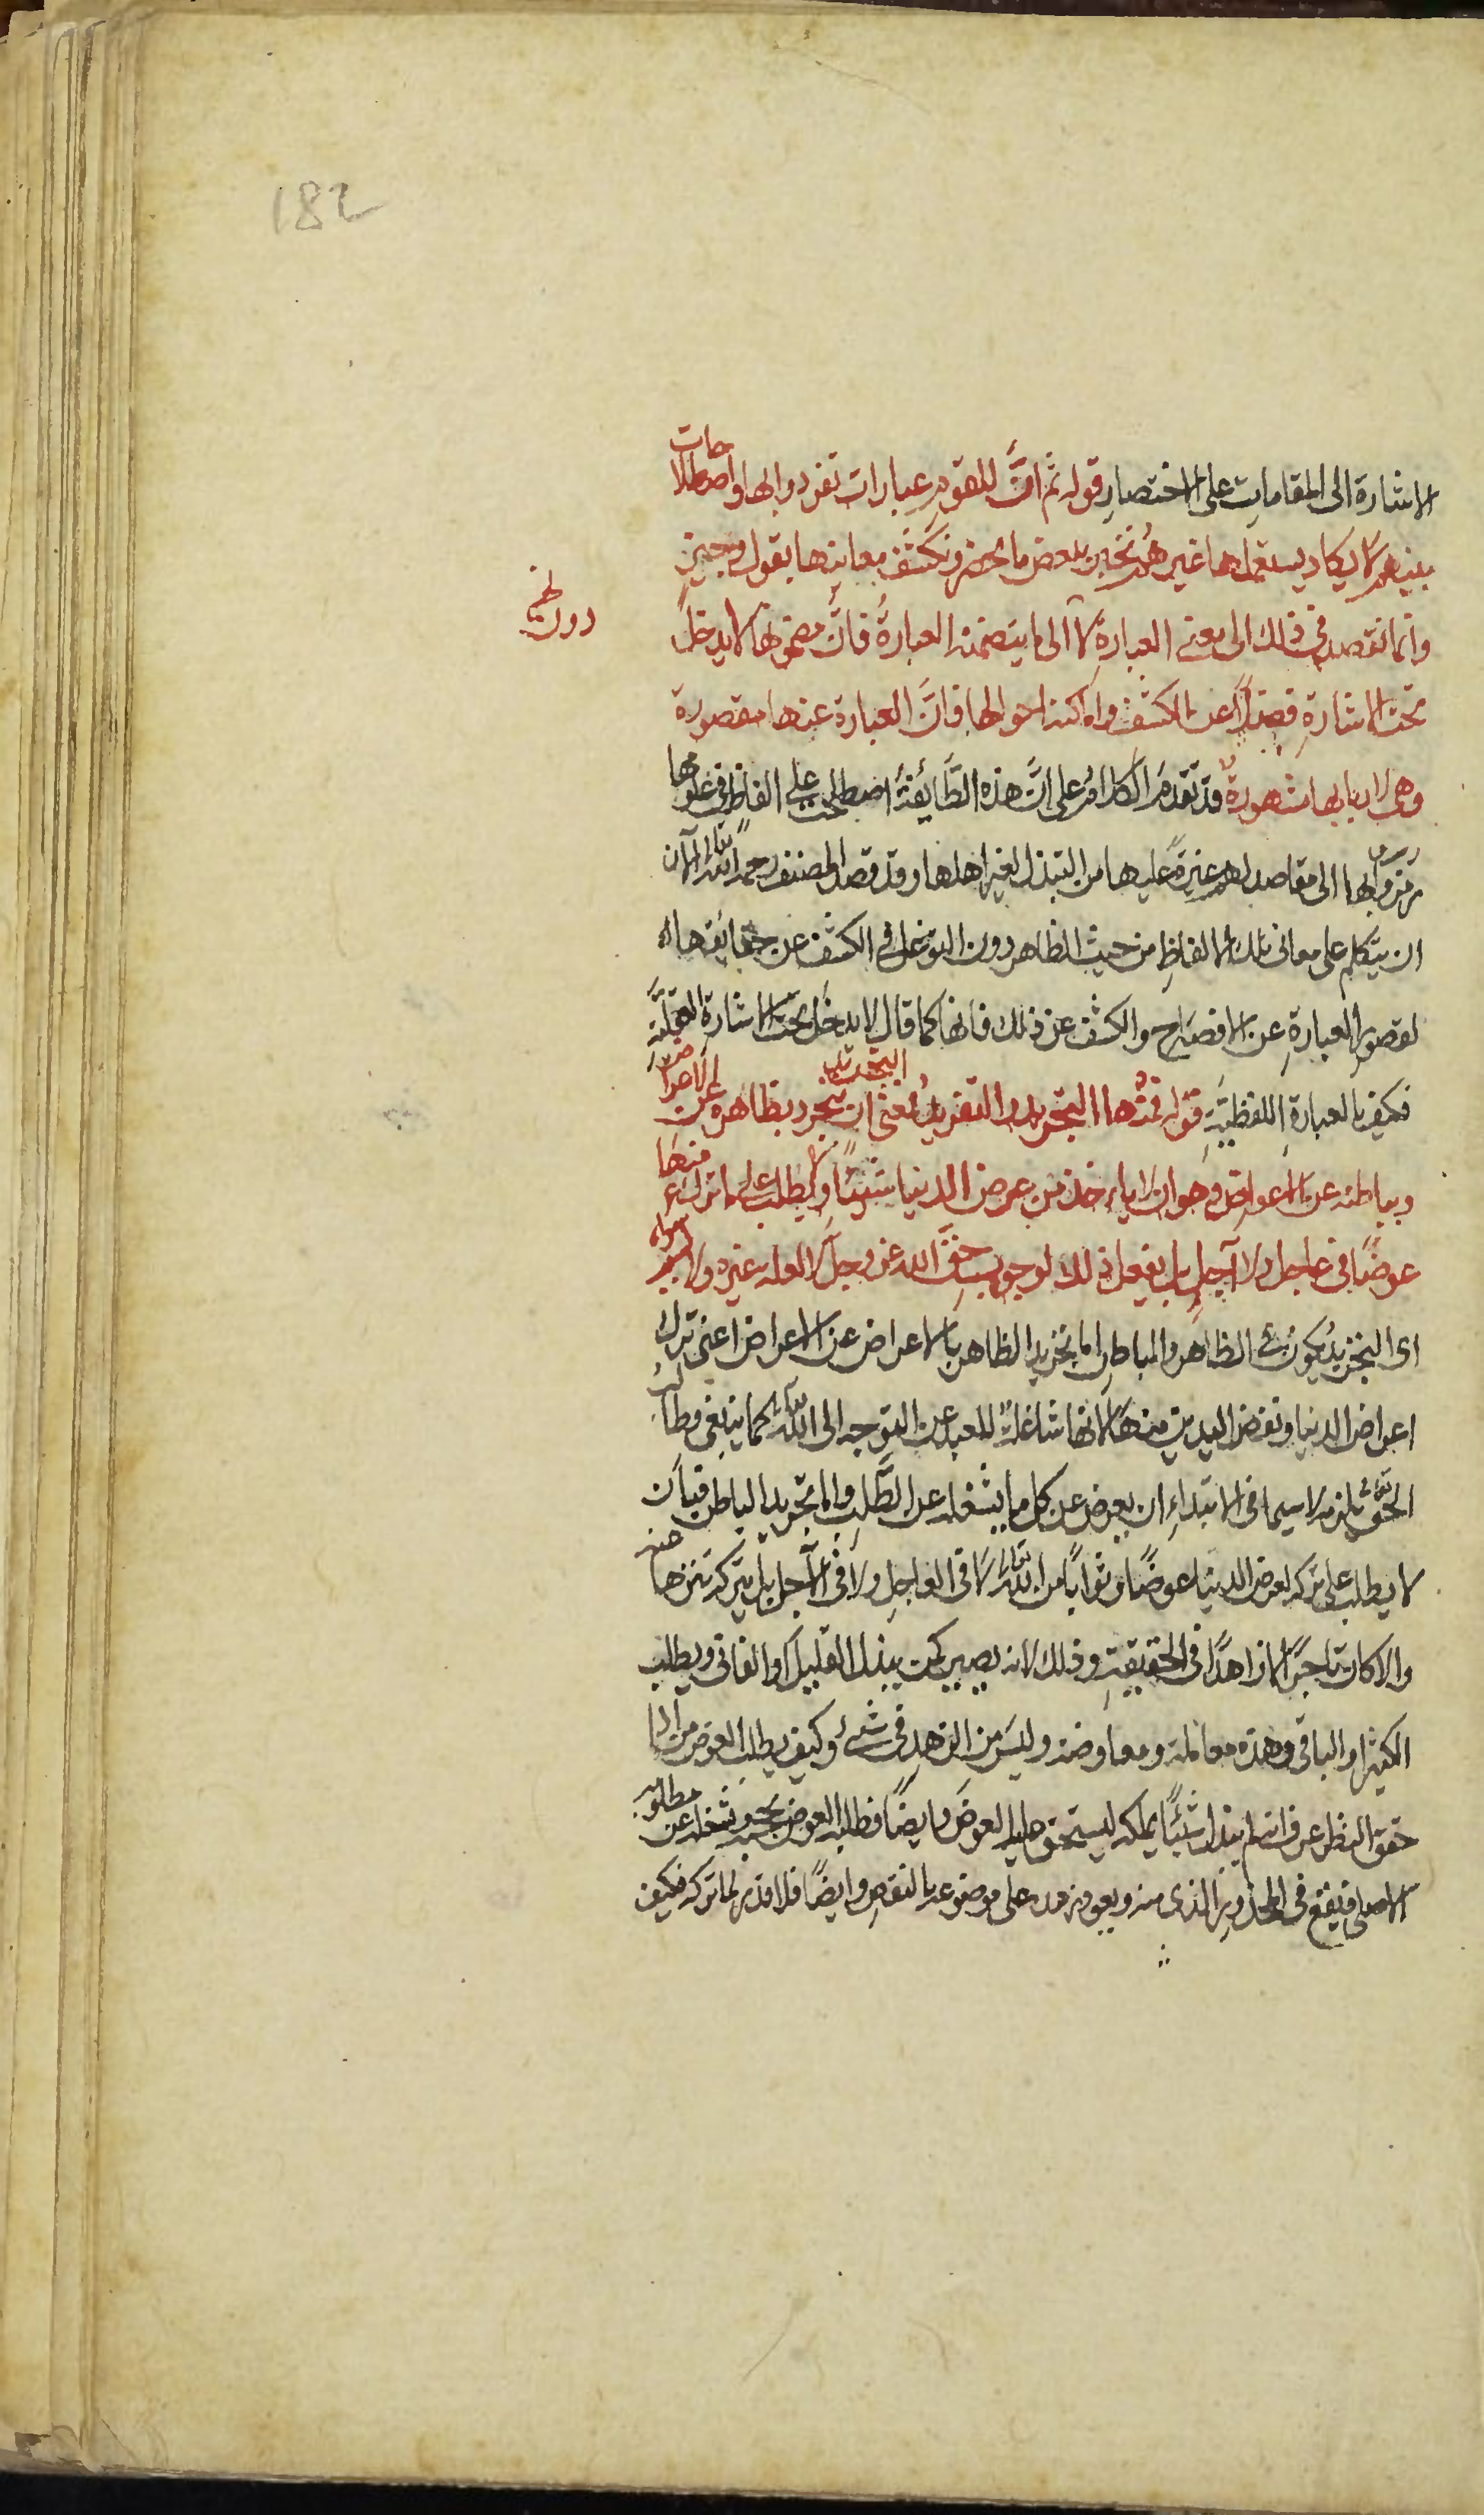 182
الاشارة الى المقامات على الاختصار قوله ثم انَّ للقوم عبارات تفردوا بها واصطلاحات
بينهم لا يكاد يستعملها غيرهم نخبر ببعض ما يحضر ونكشف معانيها بقول وجيز
وانما نقصد في ذلك الى معنى العبارة لا الى ما يتضمنه العبارة فانَّ مضمونها لا يدخل
دون
تحت الاشارة فضلاً عن الكشف واما كنه احوالها فانَّ العبارة عنها مقصورة
وهي لاربابها مشهورة قد تقدم الكلام على انَّ هذه الطَّائفة اصطلحت على الفاظ في علومها
رمزوا بها الى مقاصدهم غيرة عليها من التبذل لغير اهلها وقد قصد المصنف رحمه الله تعالى الآن
ان يتكلم على معاني تلك الالفاظ من حيث الظاهر دون التوغل في الكشف عن حقائقها
لقصور العبارة عن الافصاح والكشف عن ذلك فانها كما قال لا يدخل تحت الاشارة العقليَّة
فكيف بالعبارة اللفظيَّة قوله فمنها التجريد والتفريد فمعنى التجريد ان يتجرد بظاهره عن الاعراض
وبباطنه عن الاعواض وهو ان لا ياءخذ من عرض الدنيا شيئًا ولا يطلب على ما ترك منها
عوضًا في عاجل ولا آجل بل يفعل ذلك لوجوب حقّ الله عز وجل لا لعلة غيره ولا لسبب سواه
اى التجريد يكون في الظاهر والباطن اما تجريد الظاهر بالاعراض عن الاعراض اعنى ترك
اعراض الدنيا ونفض اليدين منها لانها شاغلة للعبد عن التوجه الى الله تعالى كما ينبغي وطالب
الحق تعالى يلزمه لا سيما في الابتداء ان يعرض عن كل ما يشغله عن الطَّلب واما تجريد الباطن فبأن
لا يطلب على تركه لعرض الدنيا عوضًا وثوابًا من الله تعالى لا في العاجل ولا في الآجل بل يتركه تنزها عنه
والا كان تاجرًا لا زاهدًا في الحقيقة وذلك لانه يصير كمن يبذل القليل او الفاني ويطلب
الكثير او الباقي وهذه معاملة ومعاوضة وليس من الزهد في شىء وكيف يطلب العوض من اذا
حقق النظر عرف انه لم يبذل شيئًا يملكه ليستحق عليه العوض وايضًا فطلبه العوض يحجبه ويشغله عن مطلوبه
الاصلى فيقع في المحذور الذى منه ويعود زهده على موضوعه بالنقص وايضًا فلا قدر لما تركه فكيف